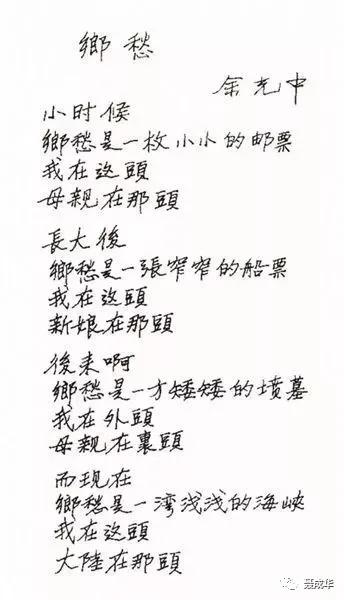 鄉愁
余光中
小时候
鄉愁是一枚小小的邮票
我在这頭
母親在那頭
長大後
鄉愁是一張窄窄的船票
我在这頭
新娘在那頭
後来啊
鄉愁是一方矮矮的墳墓
我在外頭
母親在裏頭
而現在
鄉愁是一湾浅浅的海峽
我在这頭
大陸在那頭
聂成华